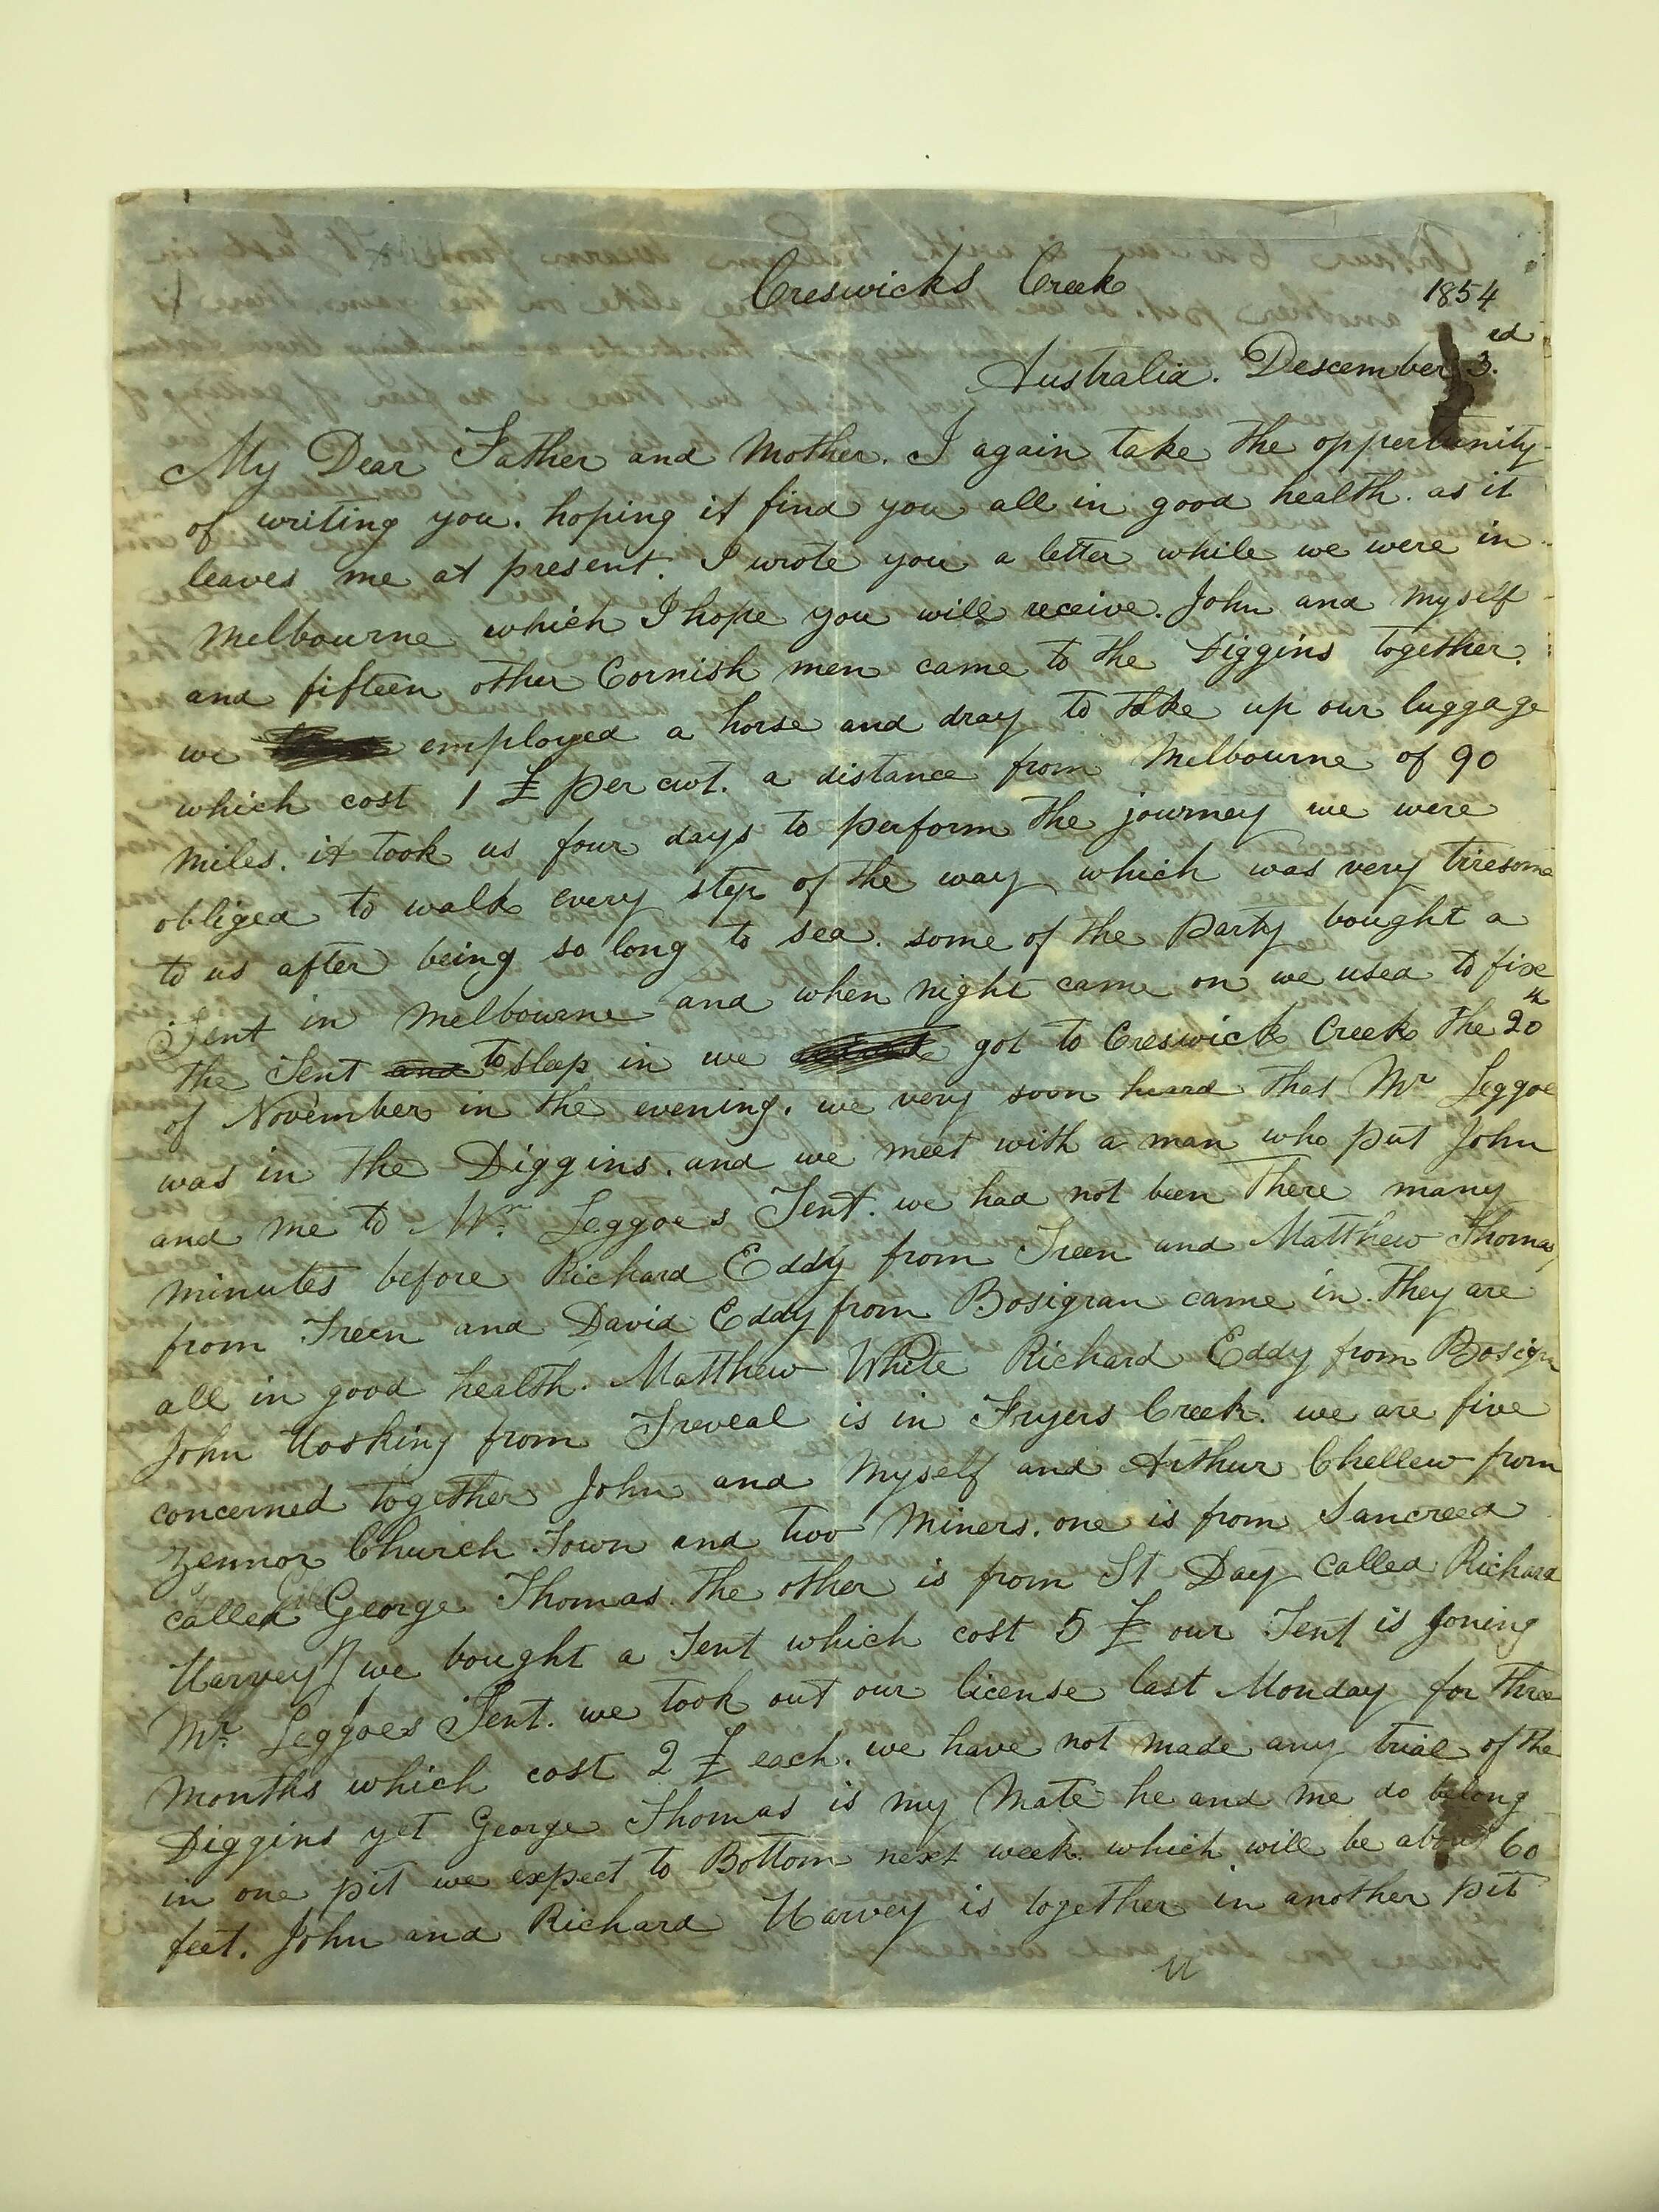 Creswicks Creek
1854
Australia. Descember 3.rd
My Dear Father and Mother. I again take the oppertunity
of writing you. hoping it find you all in good health. as it
leaves me at present. I wrote you a letter while we were in
Melbourne which I hope you will receive. John and Myself
and fifteen other Cornish men came to the Diggins together.
we employed a horse and dray to take up our luggage
which cost 1 £ per cwt. a distance from Melbourne of 90
Miles. it took us four days to perform the journey we were
obliged to walk every step of the way which was very tiresome
to us after being so long to sea. some of the Party bought a
Tent in Melbourne and when night came on we used to fixe
the Tent and to sleep in we got to Creswick Creek the 20th
of November in the evening. we very soon heard that Mr Leggoe
was in the Diggins. and we meet with a man who put John
and me to Mr. Leggoes Tent. we had not been There many
minutes before Richard Eddy from Treen and Matthew Thomas,
from Treen and David Eddy from Bosigran came in. They are
all in good health. Matthew White Richard Eddy from Bosigr
John Hosking from Treveal is in Fryers Creek. we are five
concerned together John and Myself and Arthur Chellew from
Zennor Church Town and two Miners. one is from Sancreed
called George Thomas. the other is from St Day called Richard
Harvey we bought a Tent which cost 5 £ our Tent is Joning
Mr. Leggoes Tent. we took out our license last Monday for three
Months which cost 2 £ each. we have not made any trial of the
Diggins yet George Thomas is my Mate he and me do belong
in one pit we expect to Bottom next week. which will be about 60
feet. John and Richard Harvey is together in another pit